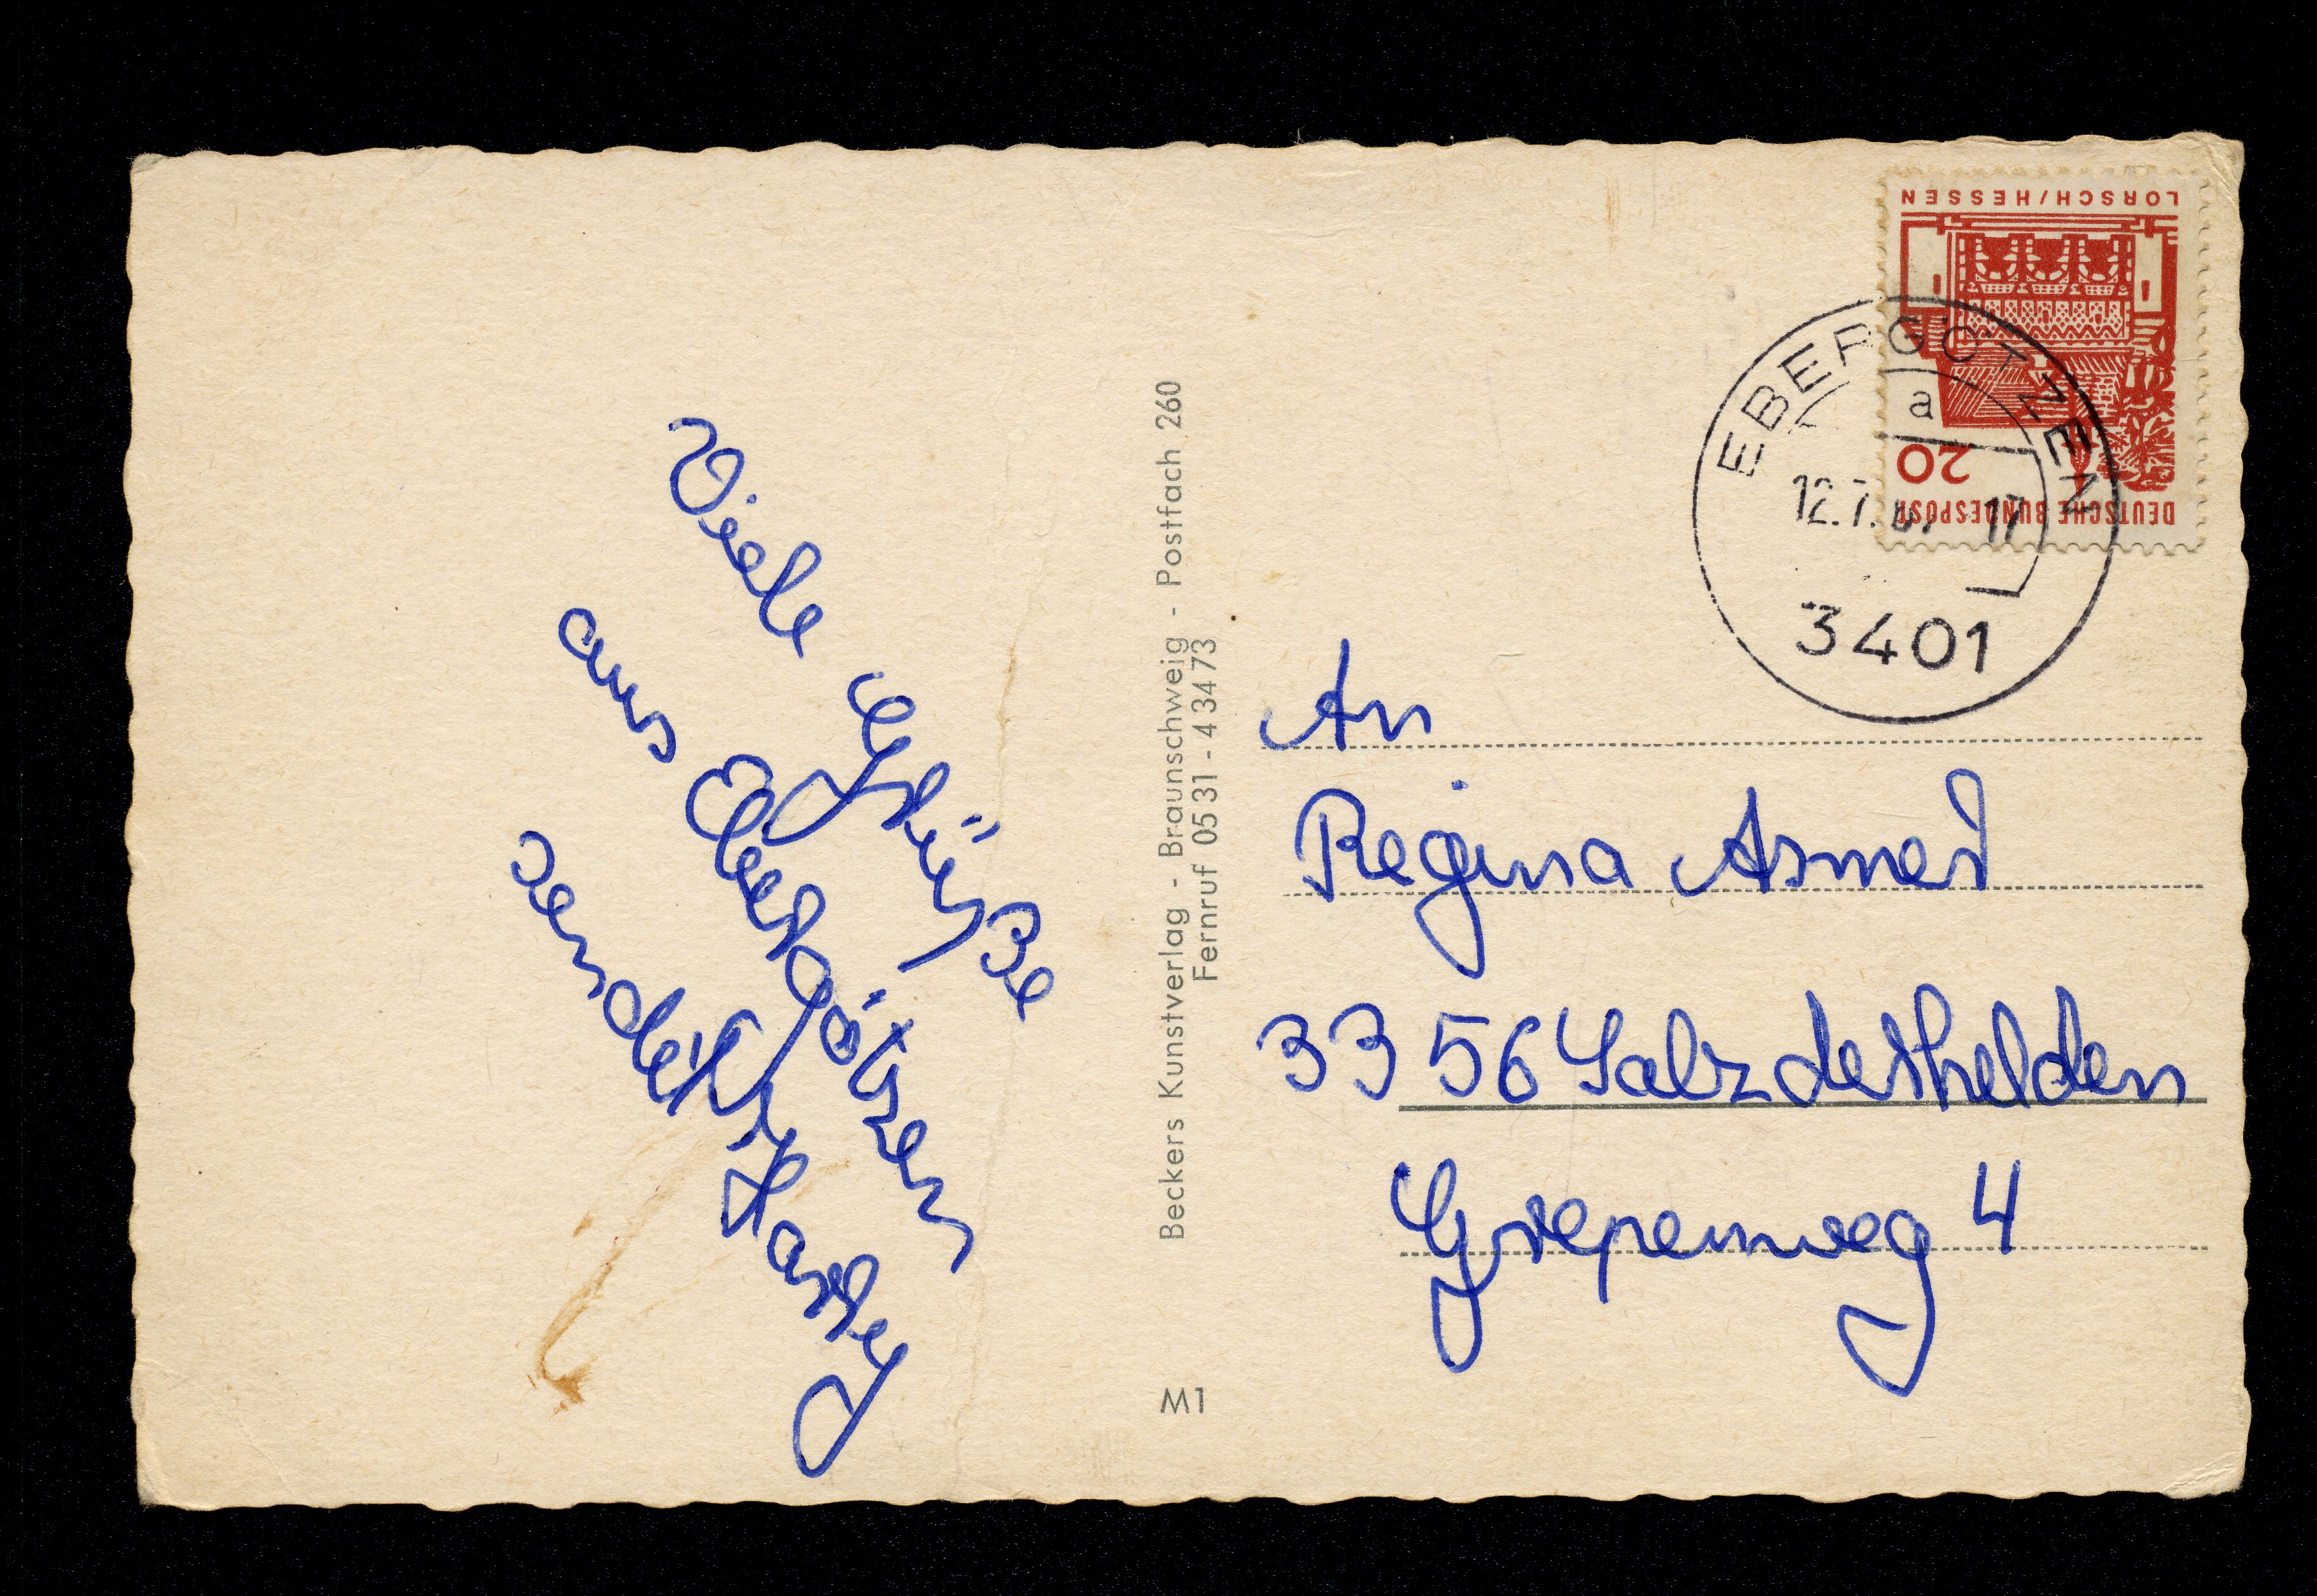 Viele Grüße
aus Ebergötzen
sendet
Beckers Kunstverlag - Braunschweig - Postfach 260
Fernruf 0531 - 4 34 73
M1
LORSCH/HESSEN
20
DEUTSCHE BUNDESPOST
EBERGÖTZEN
a
12.7. 17
3401
An
Regina
3356 Salzderhelden
4